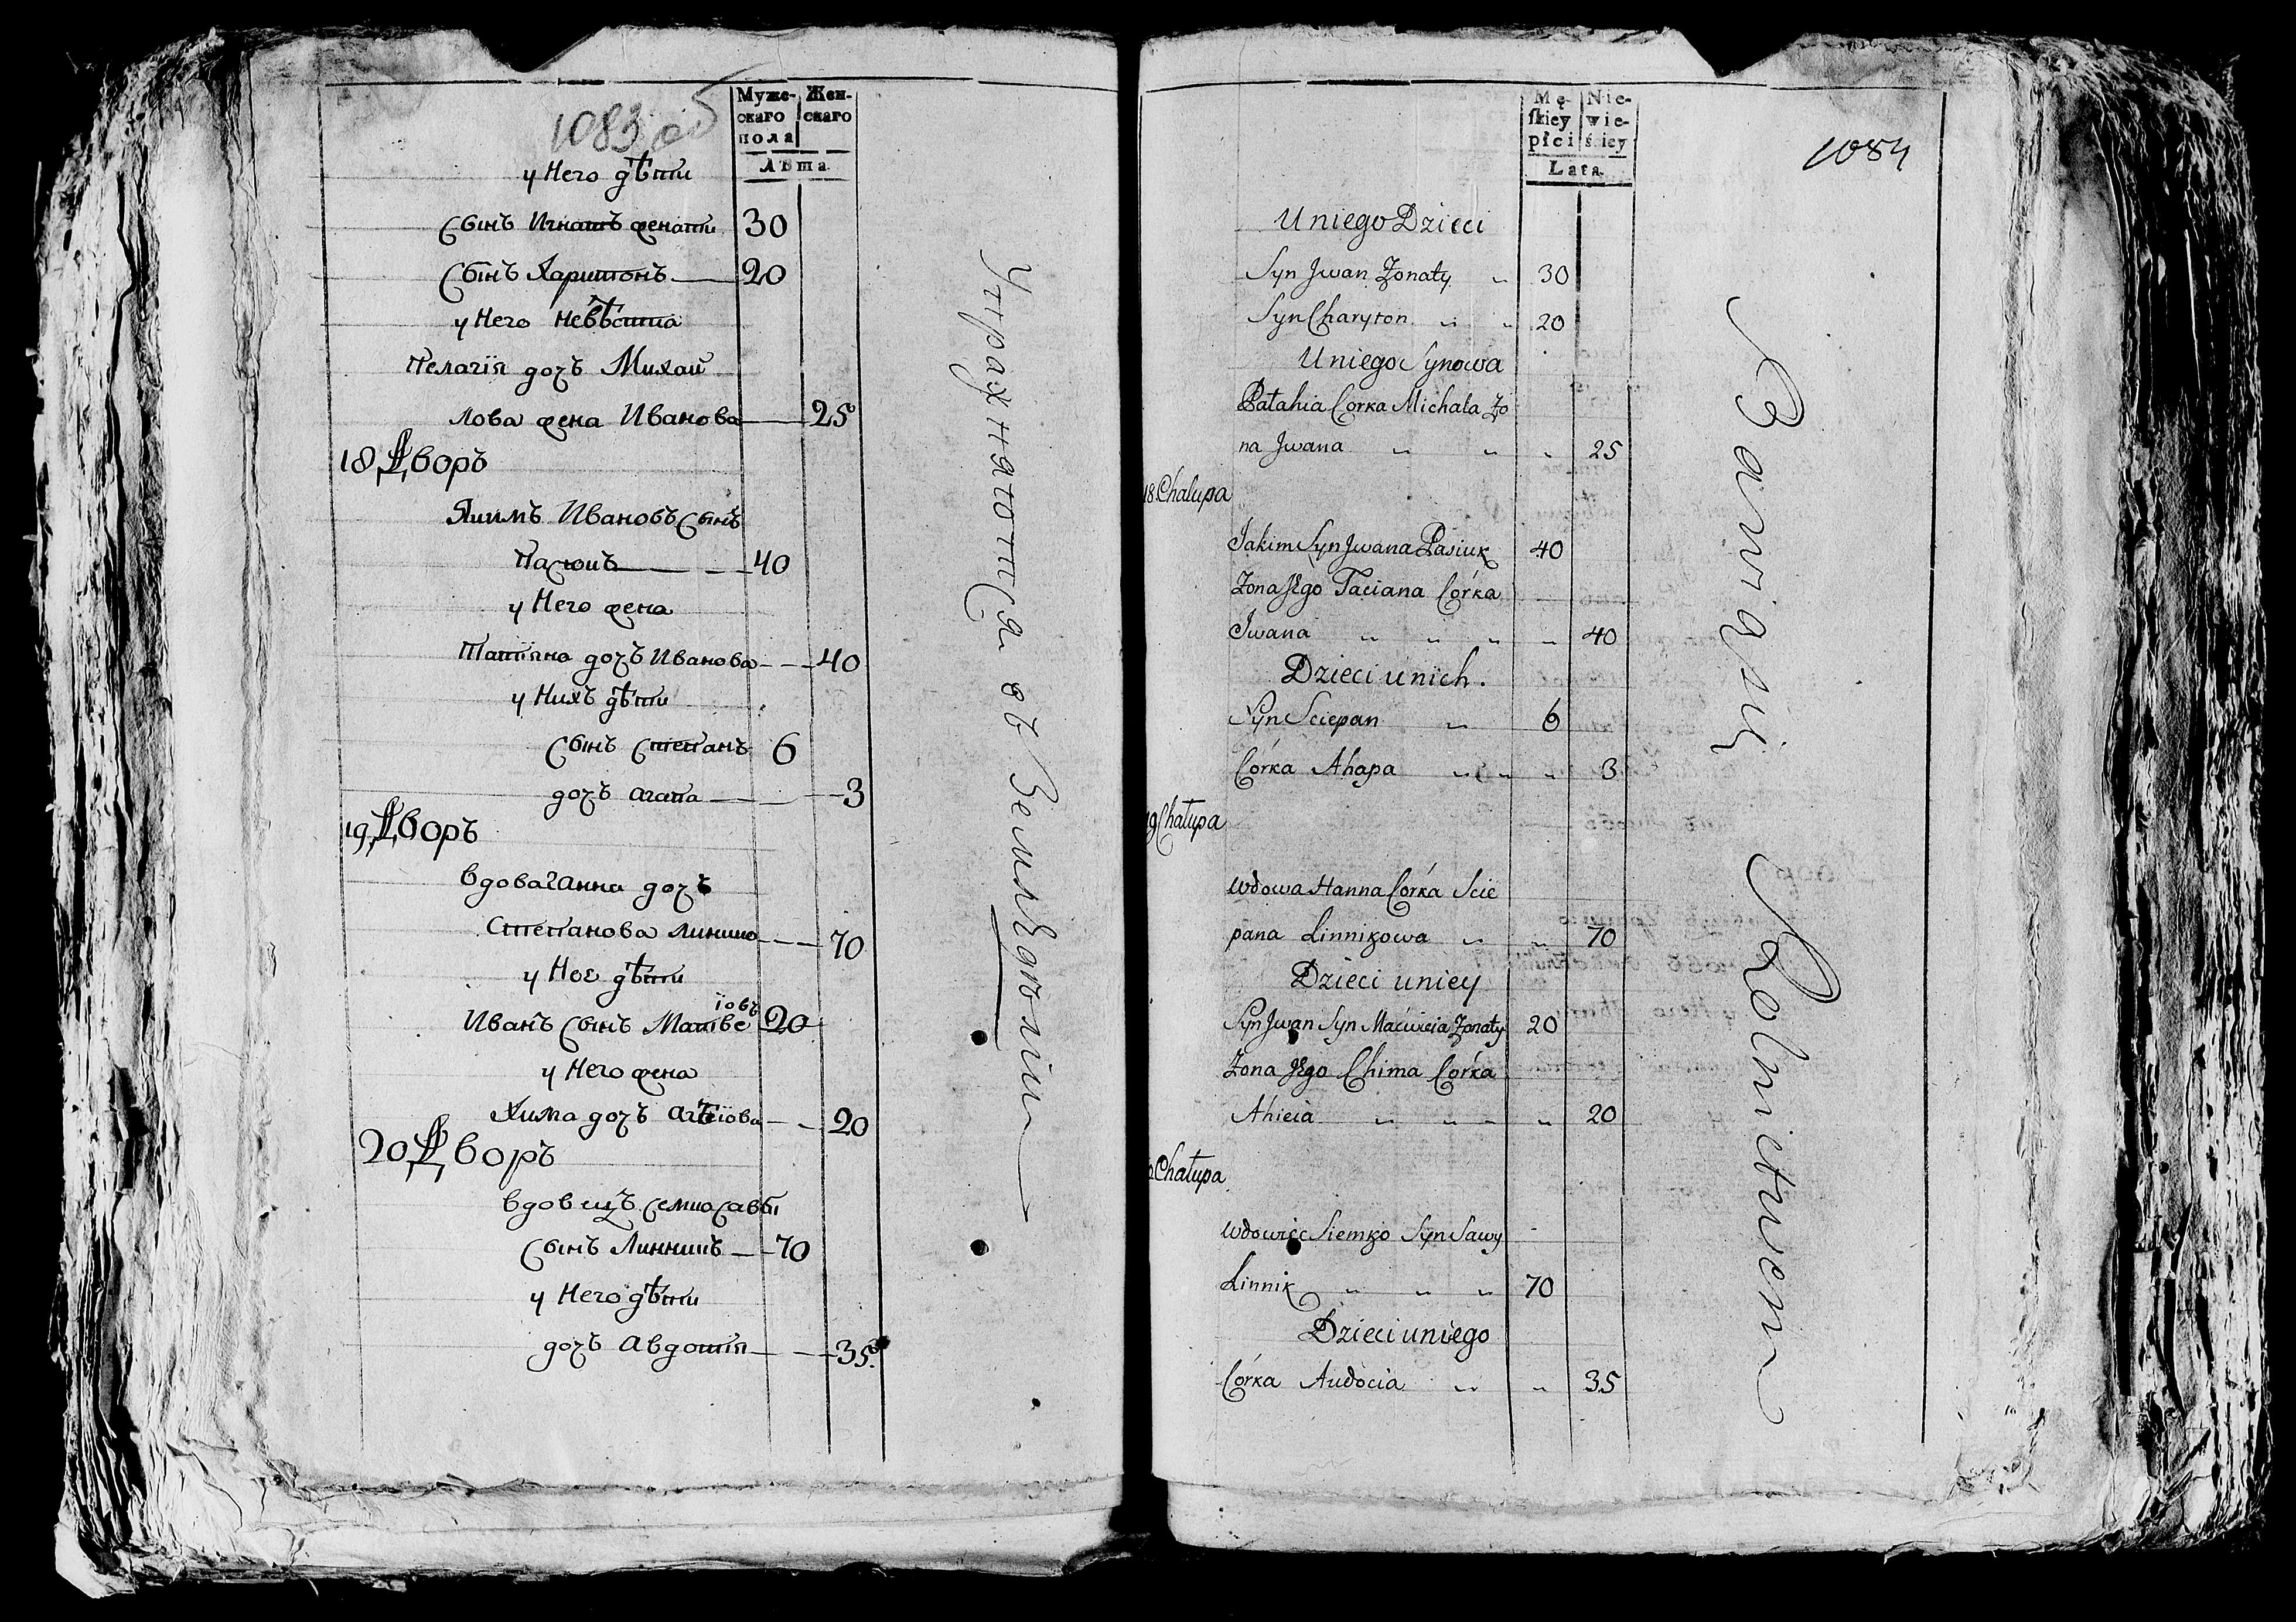 1083 об
Муже- Жен-
скаго скаго
пола
Лѣта
у Него дѣти
Сынъ Игнатъ женати 30
Сынъ Харитонъ 20
у Него Невѣстка
Пелагія дочъ Михай
лова жена Иванова 25
18 Дворъ
Якимъ Ивановъ Сынъ
Пасюкъ 40
у Него жена
Татіяна дочъ Иванова 40
у Нихъ дѣти
Сынъ Степанъ 6
дочъ Агапа 3
19 Дворъ
вдова Ганна дочъ
Степанова 70
у Нее дѣти
іовъ
Иванъ Сынъ Матве 20
у Него жена
Хима дочъ Агѣіова 20
20 Дворъ
вдовецъ Семко Саввы
Сынъ Линникъ 70
у Него дѣти
дочъ Авдотія 35
Упражняются въ Земледѣліи
Mę- Nie-
skiey wie-
płci ściey
Lata
1084
U niego Dzieci
Syn Jwan Żonaty 30
Syn Charyton 20
U niego Synowa
Pałahia Corka Michała Żo
na Jwana 25
18 Chalupa
Jakim Syn Jwana Pasiuk 40
Żona Jego Taciana Córka
Jwana 40
Dzieci u nich.
Syn Sciepan 6
Córka Ahapa 3
19 Chałupa
Wdowa Hanna Córka Scie
pana Linnikowa 70
Dzieci u niey
Syn Jwan Syn Maćwieia Żonaty 20
Żona Jego Chima Córka
Ahieia 20
Chałupa
Wdowiec Siemko Syn Sawy
Linnik 70
Dzieci u niego
Córka Audocia 35
Bawią się Rolnictwem